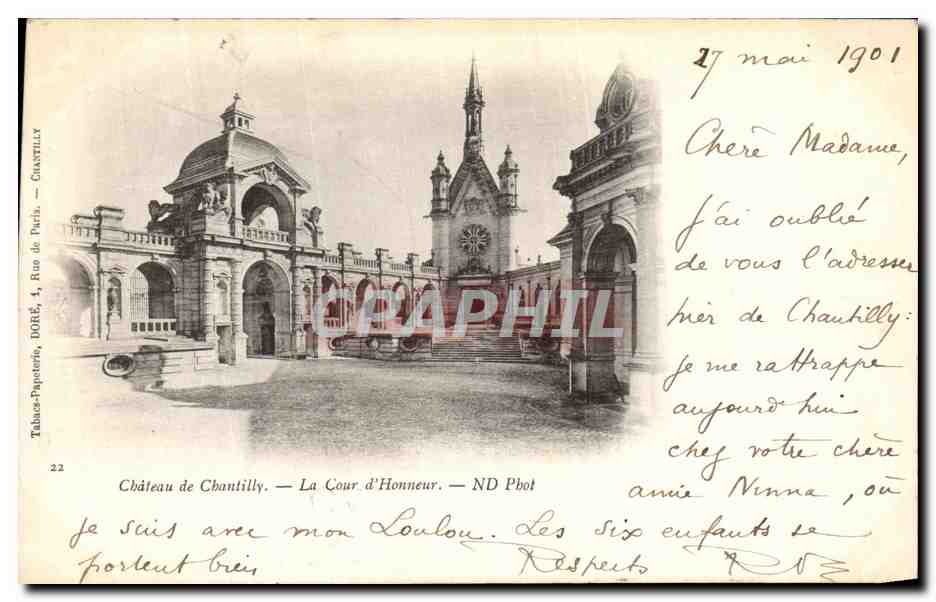 27 mai 1901
Chère Madame,
J'ai oublié
de vous l'adresser
hier de Chantilly:
je me rattrappe
aujourd'hui
chez votre chère
amie Ninna, où
je suis avec mon Loulou. Les six enfants se
portent bien
Respects
Tabacs-Papeterie, DORÉ, 1, Rue de Paris. — CHANTILLY
CPAPHIL
22
Château de Chantilly. — La Cour d'Honneur. — ND Phot